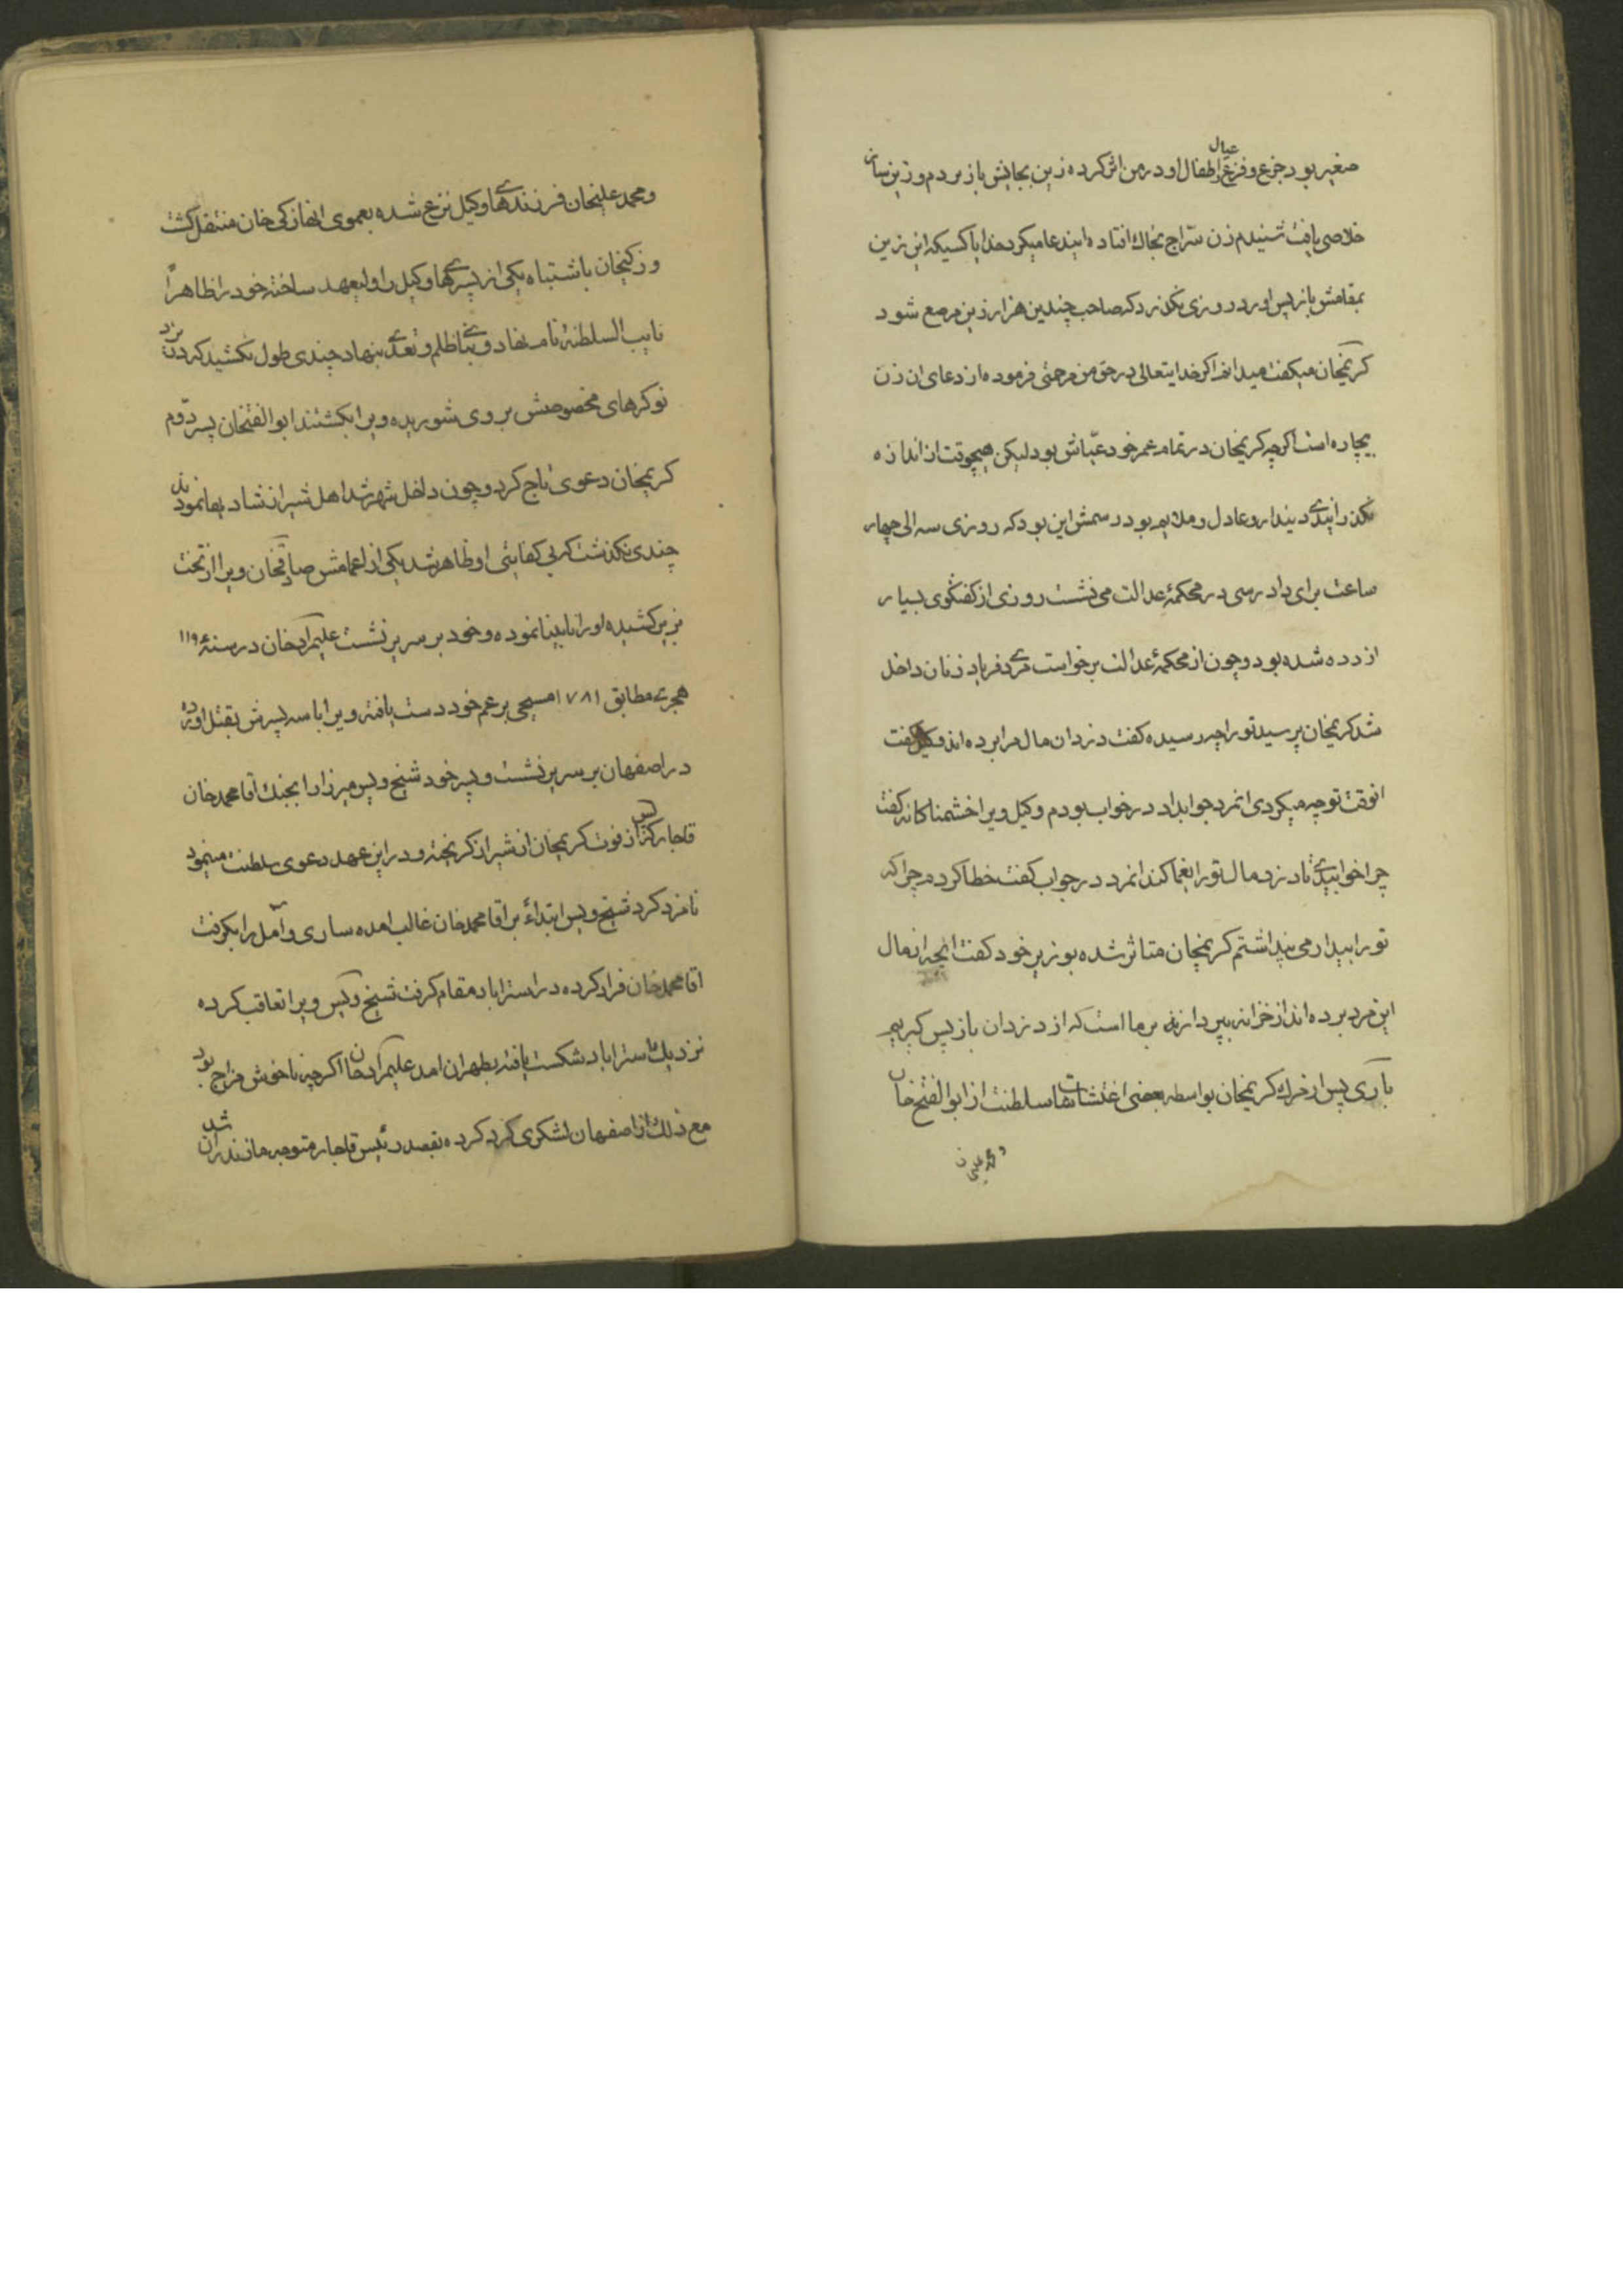 صغیر بود جزع و فزع عیال و اطفال او در من اثر کرده زین بجایش باز بردم و زین ساز
خلاصی یافت شنیدم زن سراج بخاک افتاده ایندعا میکرد خدایا کسیکه این زین
بمقامش باز پس اورد روزی نکذرد که صاحب چندین هزار زین مرصع شود
کریمخان میکفت میدانم اکر خدایتعالی در حق من مرحمتی فرموده از دعای ان زن
بیچاره است اکرچه کریمخان در تمام عمر خود عیاش بود لیکن هیچوقت از اندازه
نکذرانیدی دیندار و عادل و ملایم بود رسمش این بود که روزی سه الی چهار
ساعت برای دادرسی در محکمهٔ عدالت می نشست روزی از کفتکوی بسیار
ازرده شده بود و چون از محکمهٔ عدالت برخواست مردی فریاد زنان داخل
شد کریمخان پرسید تو را چه رسیده کفت دزدان مال مرا برده اند وکیل کفت
انوقت تو چه میکردی انمرد جوابداد در خواب بودم وکیل ویرا خشمناکانه کفت
چرا خوابیدی تا دزد مال تو را یغما کند انمرد در جواب کفت خطا کردم چرا که
تو را بیدار می پنداشتم کریمخان متاثر شده بوزیر خود کفت انچه از مال
این مرد برده اند از خزانه بپردازند بر ما است که از دزدان باز پس کیریم
باری پس از مرک کریمخان بواسطه بعضی اغتشاشات سلطنت از ابوالفتح خان
و محمد علیخان
و محمد علیخان فرزندهای وکیل نزع شده بعموی انها زکی خان منتقل کشت
و زکیخان باشتباه یکی از پسرهای وکیل را ولیعهد ساخته خود را ظاهراً
نایب السلطنهٔ نام نهاد و بنای ظلم و تعدی بنهاد چندی طول نکشید که در یزد
نوکرهای مخصوصش بر وی شوریده ویرا بکشتند ابوالفتحخان پسر دوم
کریمخان دعوی تاج کرد و چون داخل شهر شد اهل شیراز شادیها نمودند
چندی نکذشت که بی کفایتی او ظاهر شد یکی از اعمامش صادقخان ویرا از تخت
بزیر کشیده او را نابینا نموده و خود بر سریر نشست علیمراد خان در سنهٔ ۱۱۹۶
هجری مطابق ۱۷۸۱ مسیحی بر عم خود دست یافته ویرا با سه پسرش بقتل اورده
در اصفهان بر سریر نشست و پسر خود شیخ ویس میرزا را بجنک اقا محمد خان
قاجار که پس از فوت کریمخان از شیراز کریخته و در این عهد دعوی سلطنت مینمود
نامزد کرد شیخ ویس ابتداءً بر اقا محمد خان غالب امده ساری و آمل را بکرفت
اقا محمد خان فرار کرده در استراباد مقام کرفت شیخ ویس ویرا تعاقب کرده
نزدیک استراباد شکست یافته بطهران امد علیمراد خان اکرچه ناخوش مزاج بود
مع ذلک از اصفهان لشکری کرد کرده بقصد رئیس قاجار متوجه مازندران شد